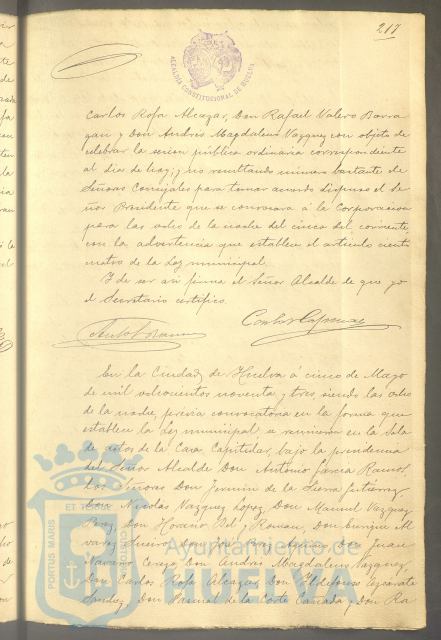 217
ALCALDÍA CONSTITUCIONAL DE HUELVA
Carlos Rofa Alcazar, Don Rafael Valero Barra
gan y Don Andrés Magdaleno Vazquez con objeto de
celebrar la sesion pública ordinaria correspondiente
al dia de hoy, y no resultando número bastante de
Señores Concejales para tomar acuerdo dispuso el Se
ñor Presidente que se convocara á la Corporacion
para las ocho de la noche del cinco del corriente,
con la advertencia que establece el artículo ciento
cuatro de la Ley municipal.
Y de ser asi firma el Señor Alcalde de que yo
el Secretario certifico.
En la Ciudad de Huelva á cinco de Mayo
de mil ochocientos noventa y tres, siendo las ocho
de la noche, prévia convocatoria en la forma que
establece la Ley municipal, se reunieron en la Sala
de actos de la Casa Capitular, bajo la presidencia
del Señor Alcalde Don Antonio Garcia Ramos
los Señores Don Fermin de la Sierra Gutierrez,
Don Nicolas Vazquez Lopez, Don Manuel Vazquez
Perez, Don Horacio Bel y Roman, Don Enrique Al
varez Don José Don Juan
Navarro Cerezo, Don Andrés Magdaleno Vazquez,
Don Carlos Rofa Alcazar, Don Ildefonso
Sanchez, Don Pascual de la Corte Cañada y Don Ra
PORTUS MARIS ET TERRAE CUSTODIA
Ayuntamiento de
HUELVA